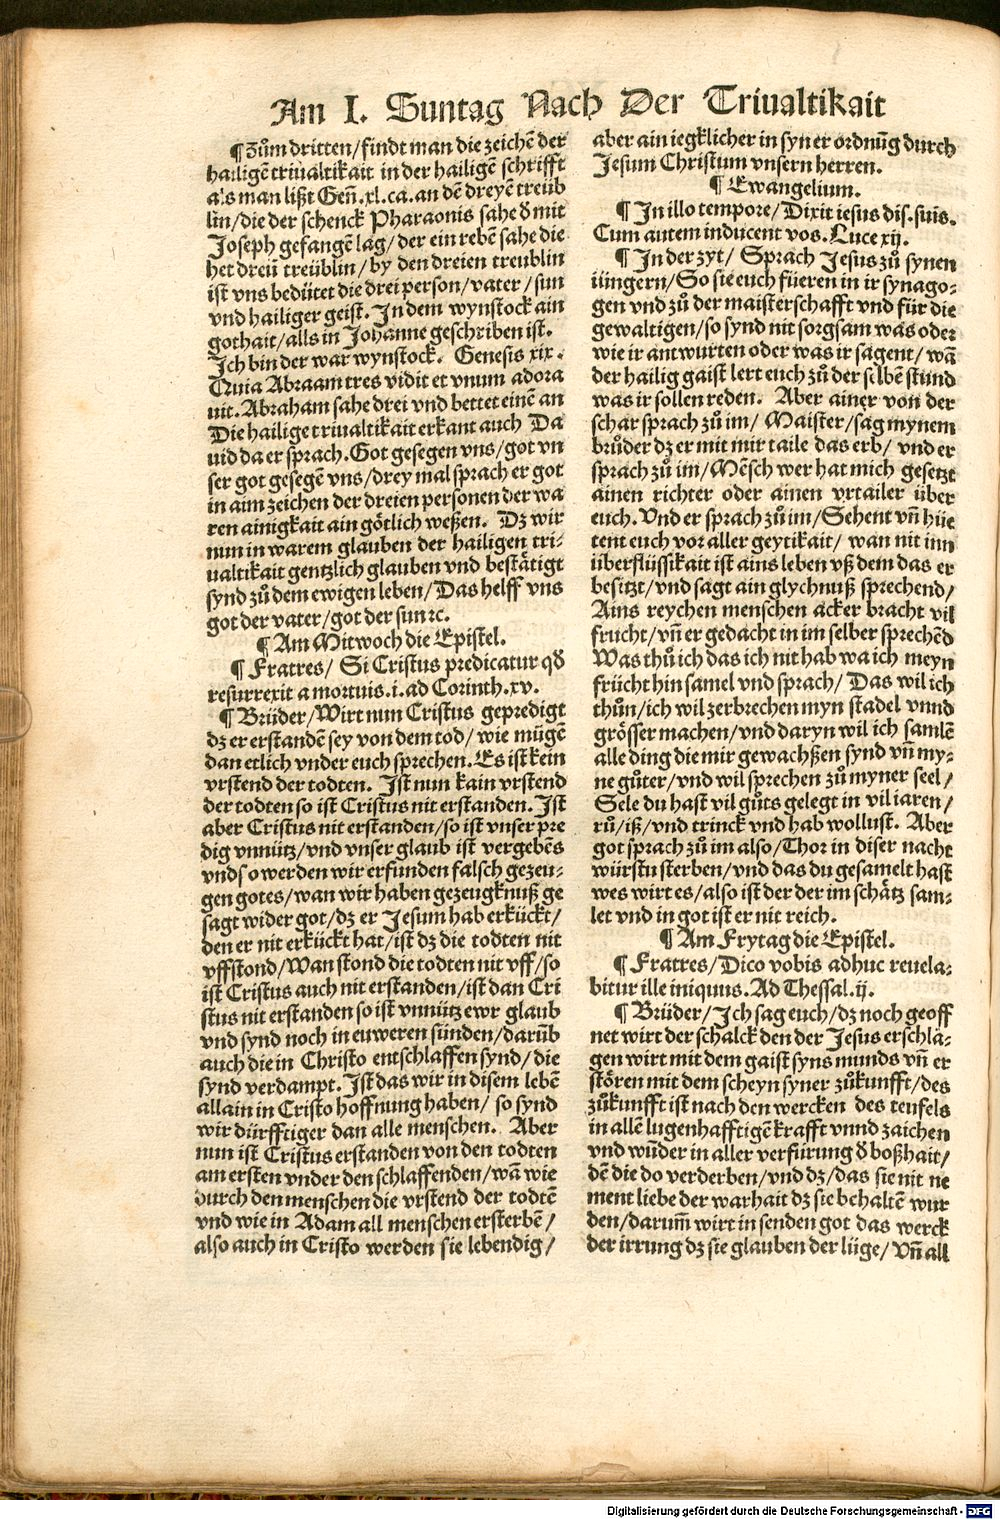 Am I. Suntag Nach Der Triualtikait
¶ Zům dritten/findt man die zeichē der
hailigē triualtikait in der hailigē schrifft
als man lißt Genn̄.xl.ca.an dē dreyē treüb
lin/die der schenck Pharaonis sahe d̄ mit
Joseph gefangē lag/der ein rebē sahe die
het dreü treüblin/by den dreien treublin
ist vns bedütet die drei person/vater/sun
vnd hailiger geist. In dem wynstock ain
gothait/alls in Johanne geschriben ist.
Ich bin der war wynstock. Genesis xix.
Quia Abraam tres vidit et vnum adora
uit. Abraham sahe drei vnd bettet einē an
Die hailige triualtikait erkant auch Da
uid da er sprach. Got gesegen vns/got vn
ser got gesegē vns/drey mal sprach er got
in aim zeichen der dreien personen der wa
ren ainigkait ain götlich weßen. Dz wir
nun in warem glauben der hailigen tri⸗
ualtikait gentzlich glauben vnd bestätigt
synd zů dem ewigen leben/Das helff vns
got der vater/got der sun ꝛc.
¶ Am Mitwoch die Epistel.
¶ Fratres/ Si Cristus predicatur qd̄
resurrexit a mortuis.i.ad Corinth.xv.
¶ Brüder/Wirt nun Cristus gepredigt
dz er erstandē sey von dem tod/wie mügē
dan etlich vnder euch sprechen. Es ist kein
vrstend der todten. Ist nun kain vrstend
der todten so ist Cristus nit erstanden. Ist
aber Cristus nit erstanden/so ist vnser pre
dig vnnütz/vnd vnser glaub ist vergebēs
vnd so werden wir erfunden falsch gezeu⸗
gen gotes/wan wir haben gezeugknuß ge
sagt wider got/dz er Jesum hab erkückt/
den er nit erkückt hat/ist dz die todten nit
vffstond/Wan stond die todten nit vff/so
ist Cristus auch nit erstanden/ist dan Cri
stus nit erstanden so ist vnnütz ewr glaub
vnd synd noch in euweren sünden/darūb
auch die in Christo entschlaffen synd/die
synd verdampt. Ist das wir in disem lebē
allain in Cristo hoffnung haben/ so synd
wir dürfftiger dan alle menschen. Aber
nun ist Cristus erstanden von den todten
am ersten vnder den schlaffenden/wā wie
durch den menschen die vrstend der todtē
vnd wie in Adam all menschen ersterbē/
also auch in Cristo werden sie lebendig/
aber ain iegklicher in syner ordnūg durch
Jesum Christum vnsern herren.
¶ Ewangelium.
¶ In illo tempore/Dixit iesus dis.suis.
Cum autem inducent vos.Luce xij.
¶ In der zyt/ Sprach Jesus zů synen
iüngern/So sie euch füeren in ir synago⸗
gen vnd zů der maisterschafft vnd für die
gewaltigen/so synd nit sorgsam was oder
wie ir antwurten oder was ir sagent/wā
der hailig gaist lert euch zů der selbē stund
was ir sollen reden. Aber ainer von der
schar sprach zů im/ Maister/sag mynem
brůder dz er mit mir taile das erb/ vnd er
sprach zů im/Mēsch wer hat mich gesetzt
ainen richter oder ainen vrtailer über
euch. Vnd er sprach zů im/Sehent vn̄ hüe
tent euch vor aller geytikait/ wan nit inn
überflüssikait ist ains leben vß dem das er
besitzt/vnd sagt ain glychnuß sprechend/
Ains reychen menschen acker bracht vil
frucht/vn̄ er gedacht in im selber sprechēd
Was thů ich das ich nit hab wa ich meyn
frücht hin samel vnd sprach/ Das wil ich
thůn/ich wil zerbrechen myn stadel vnnd
grösser machen/vnd daryn wil ich samlē
alle ding die mir gewachßen synd vn̄ my⸗
ne gůter/vnd wil sprechen zů myner seel/
Sele du hast vil gůts gelegt in vil iaren/
rů/iß/vnd trinck vnd hab wollust. Aber
got sprach zů im also/Thor in diser nacht
würstu sterben/vnd das du gesamelt hast
wes wirt es/also ist der der im schätz sam⸗
let vnd in got ist er nit reich.
¶ Am Frytag die Epistel.
¶ Fratres/Dico vobis adhuc reuela⸗
bitur ille iniquus.Ad Thessal.ij.
¶ Brüder/Ich sag euch/dz noch geoff
net wirt der schalck den der Jesus erschla⸗
gen wirt mit dem gaist syns munds vn̄ er
stören mit dem scheyn syner zůkunfft/des
zůkunfft ist nach den wercken des teufels
in allē lugenhafftigē krafft vnnd zaichen
vnd wūder in aller verfürung d̄ boßhait/
dē die do verderben/vnd dz/das sie nit ne
ment liebe der warhait dz sie behaltē wur
den/darum̄ wirt in senden got das werck
der irrung dz sie glauben der lüge/vn̄ all
Digitalisierung gefördert durch die Deutsche Forschungsgemeinschaft - DFG